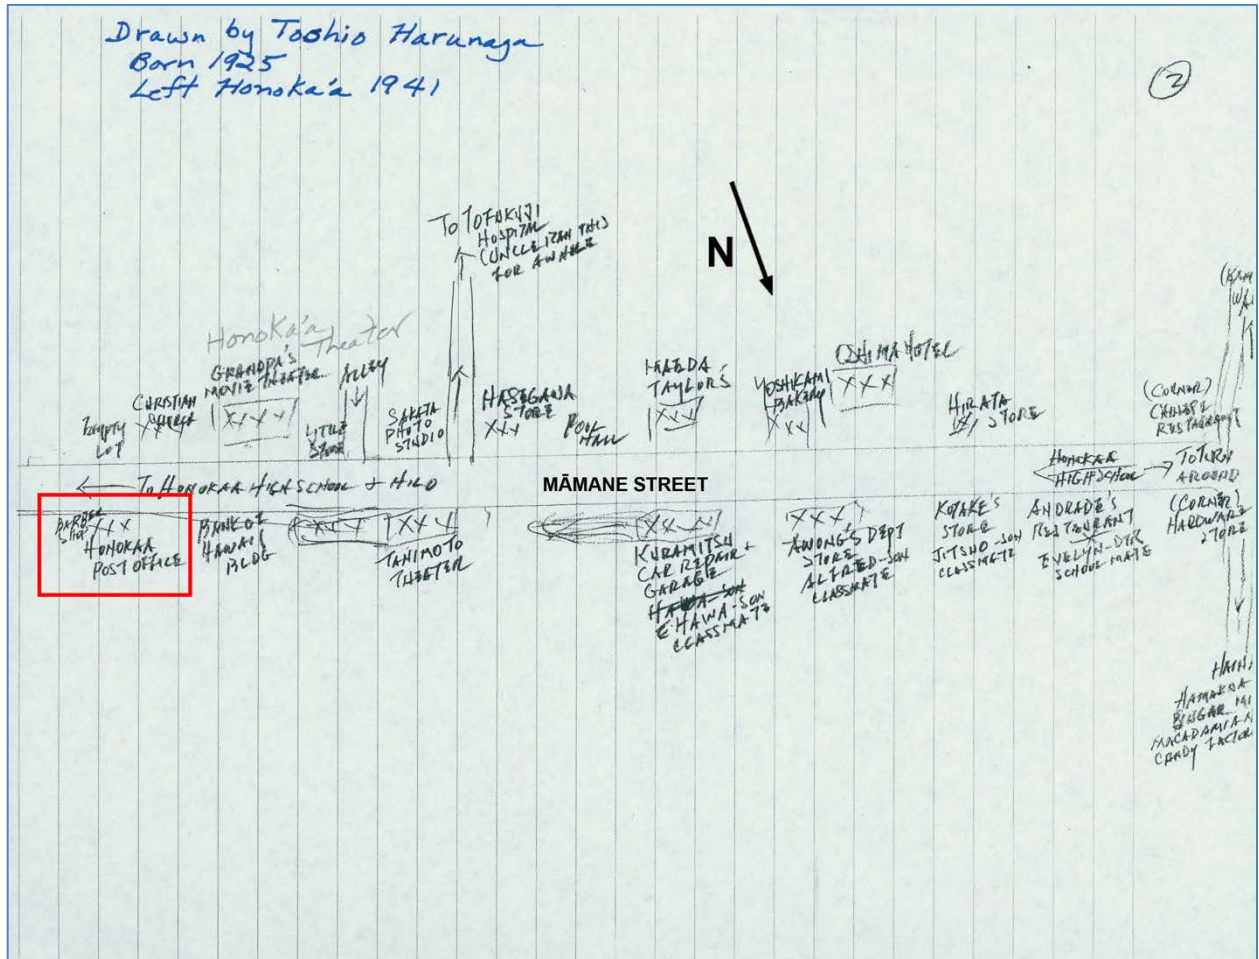 Drawn by Toshio Harunaga
Born 1925
Left Honoka'a 1941
2
To TOFUKUJI
HOSPITAL
(UNCLE RAN THIS
FOR AWHILE
N
Honoka'a
Theater
EMPTY
LOT
CHRISTIAN
CHURCH
XXX
GRANDPA'S
MOVIE THEATER
XXXX
LITTLE
STORE
ALLEY
SAKATA
PHOTO
STUDIO
HASEGAWA
STORE
XXX
POOL
HALL
MAEDA
TAYLOR'S
XXX
YOSHIKAMI
BAKERY
XX
OSHIMA HOTEL
XXX
HIRATA
STORE
(CORNER)
CHINESE
RESTAURANT
TO HONOKAA HIGH SCHOOL & HILO
MĀMANE STREET
HONOKAA
HIGH SCHOOL
TO TURN
AROUND
BARBER
SHOP
XX
HONOKAA
POST OFFICE
BANK OF
HAWAII
BLDG
XXX
XXX
TANIMOTO
THEATER
XXX
KURAMITSU
CAR REPAIR &
GARAGE
HAWA-SON
E HAWA-SON
CLASSMATE
XXX
AWONG'S DEPT
STORE
ALFRED-SON
CLASSMATE
KOTAKE'S
STORE
JITSUO-SON
CLASSMATE
ANDRADE'S
RESTAURANT
EVELYN-DTR
SCHOOL MATE
(CORNER)
HARDWARE
STORE
HAMAKUA
SUGAR MI
MACADAMIA N
CANDY FACTOR